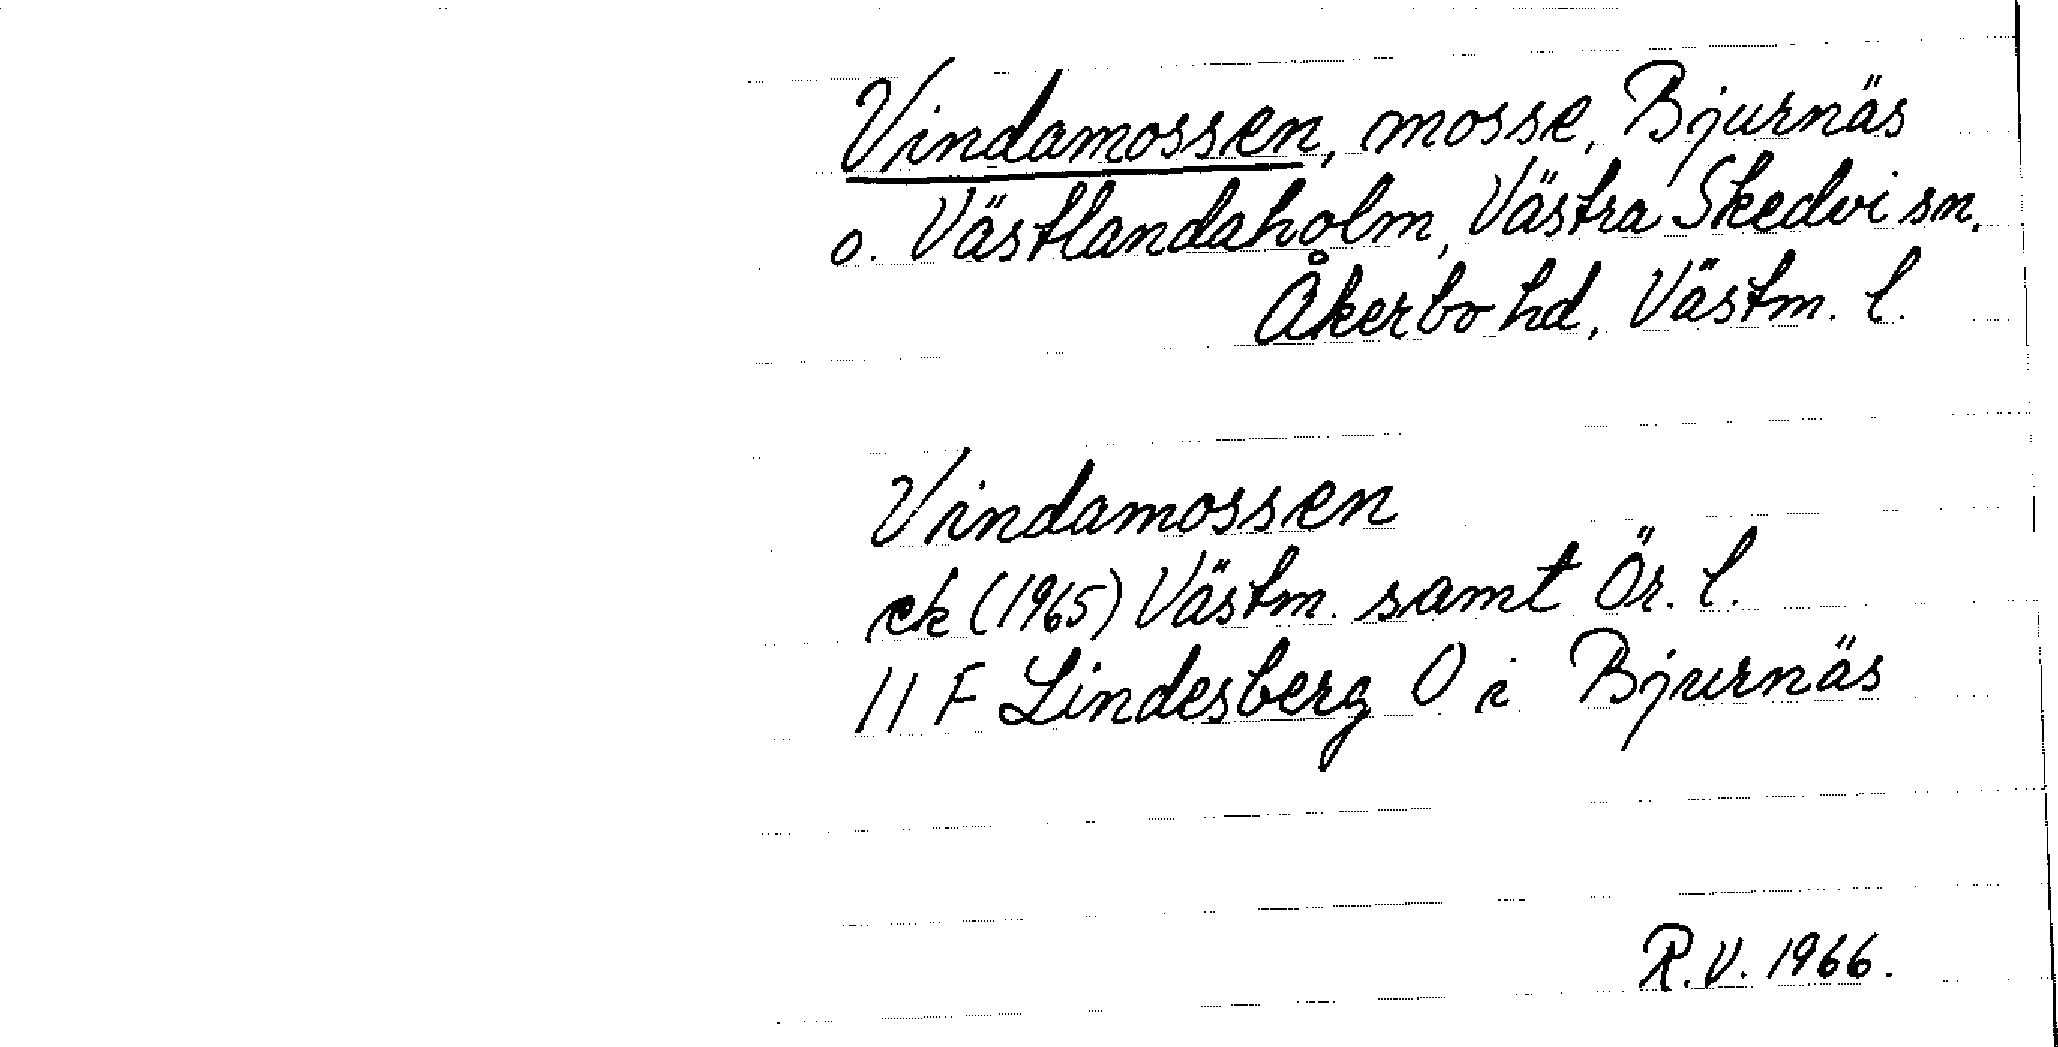 Vindamossen, mosse, Bjurnäs
o. Västlandaholm, Västra Skedvi sn.
Åkerbo hd, Västm. l.
Vindamossen
ek (1965) Västm. samt Ör. l.
11 F Lindesberg O i Bjurnäs
R.V. 1966.